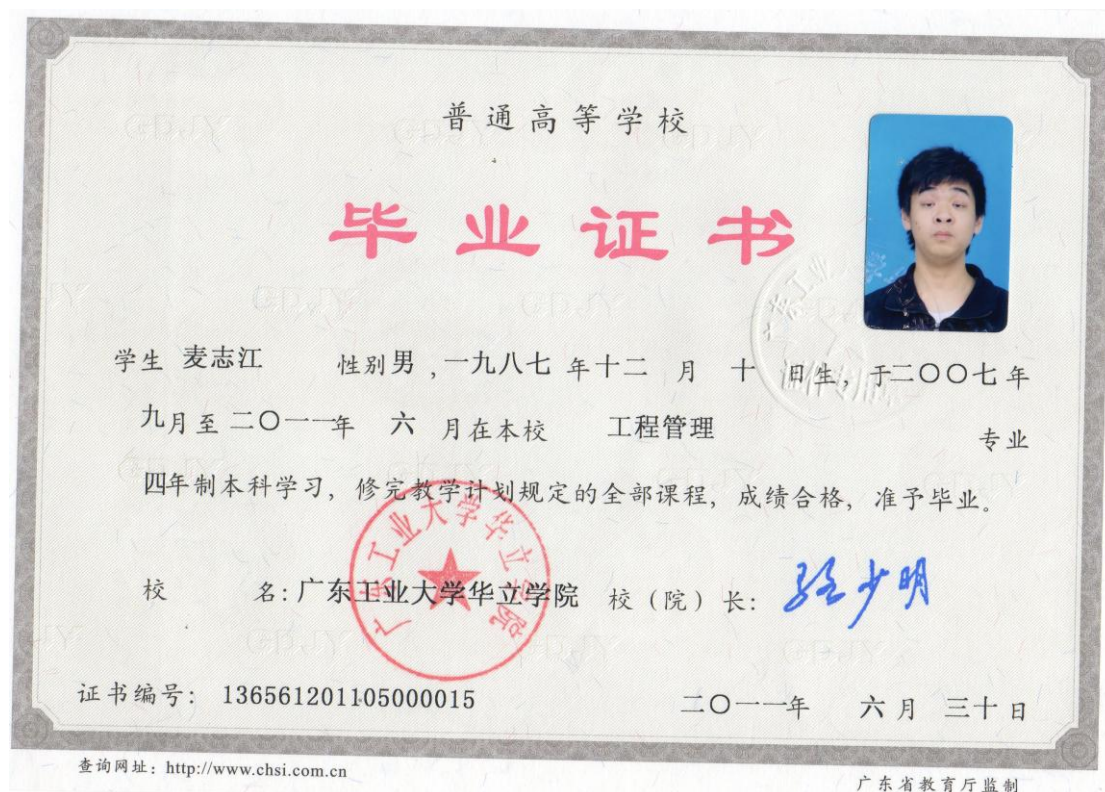 普通高等学校
毕业证书
学生 麦志江 性别 男 ,一九八七 年 十二 月 十 日生, 于二〇〇七年
九月至 二〇一一年 六 月在本校 工程管理 专业
四年制本科学习, 修完教学计划规定的全部课程, 成绩合格, 准予毕业。
校 名: 广东工业大学华立学院 校(院)长:
广东工业大学华立学院
证书编号: 136561201105000015 二〇一一年 六 月 三十 日
查询网址: http://www.chsi.com.cn
广东省教育厅监制